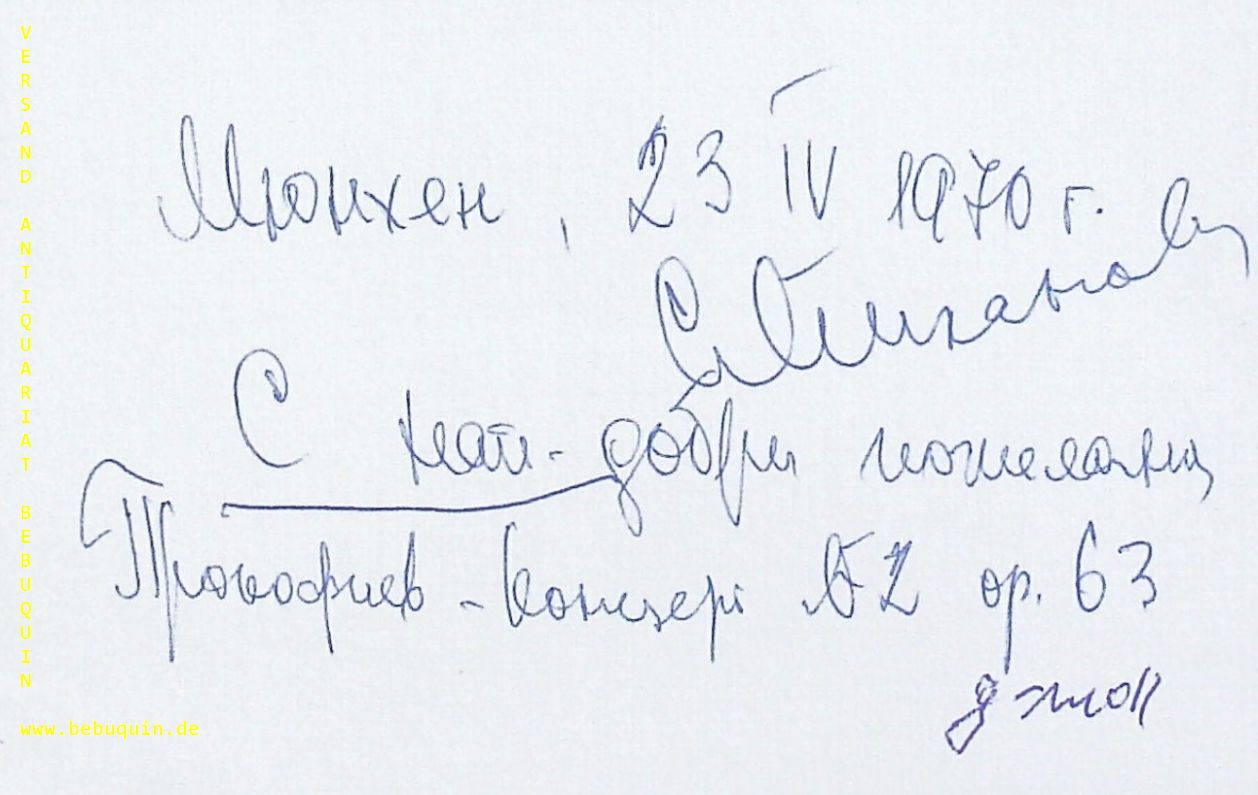 VERSAND ANTIQUARIAT BEBUQUIN
Мюнхен, 23 IV 1970 г.
С най-добри пожелания
Прокофиев - Концерт №2 op. 63
www.bebuquin.de